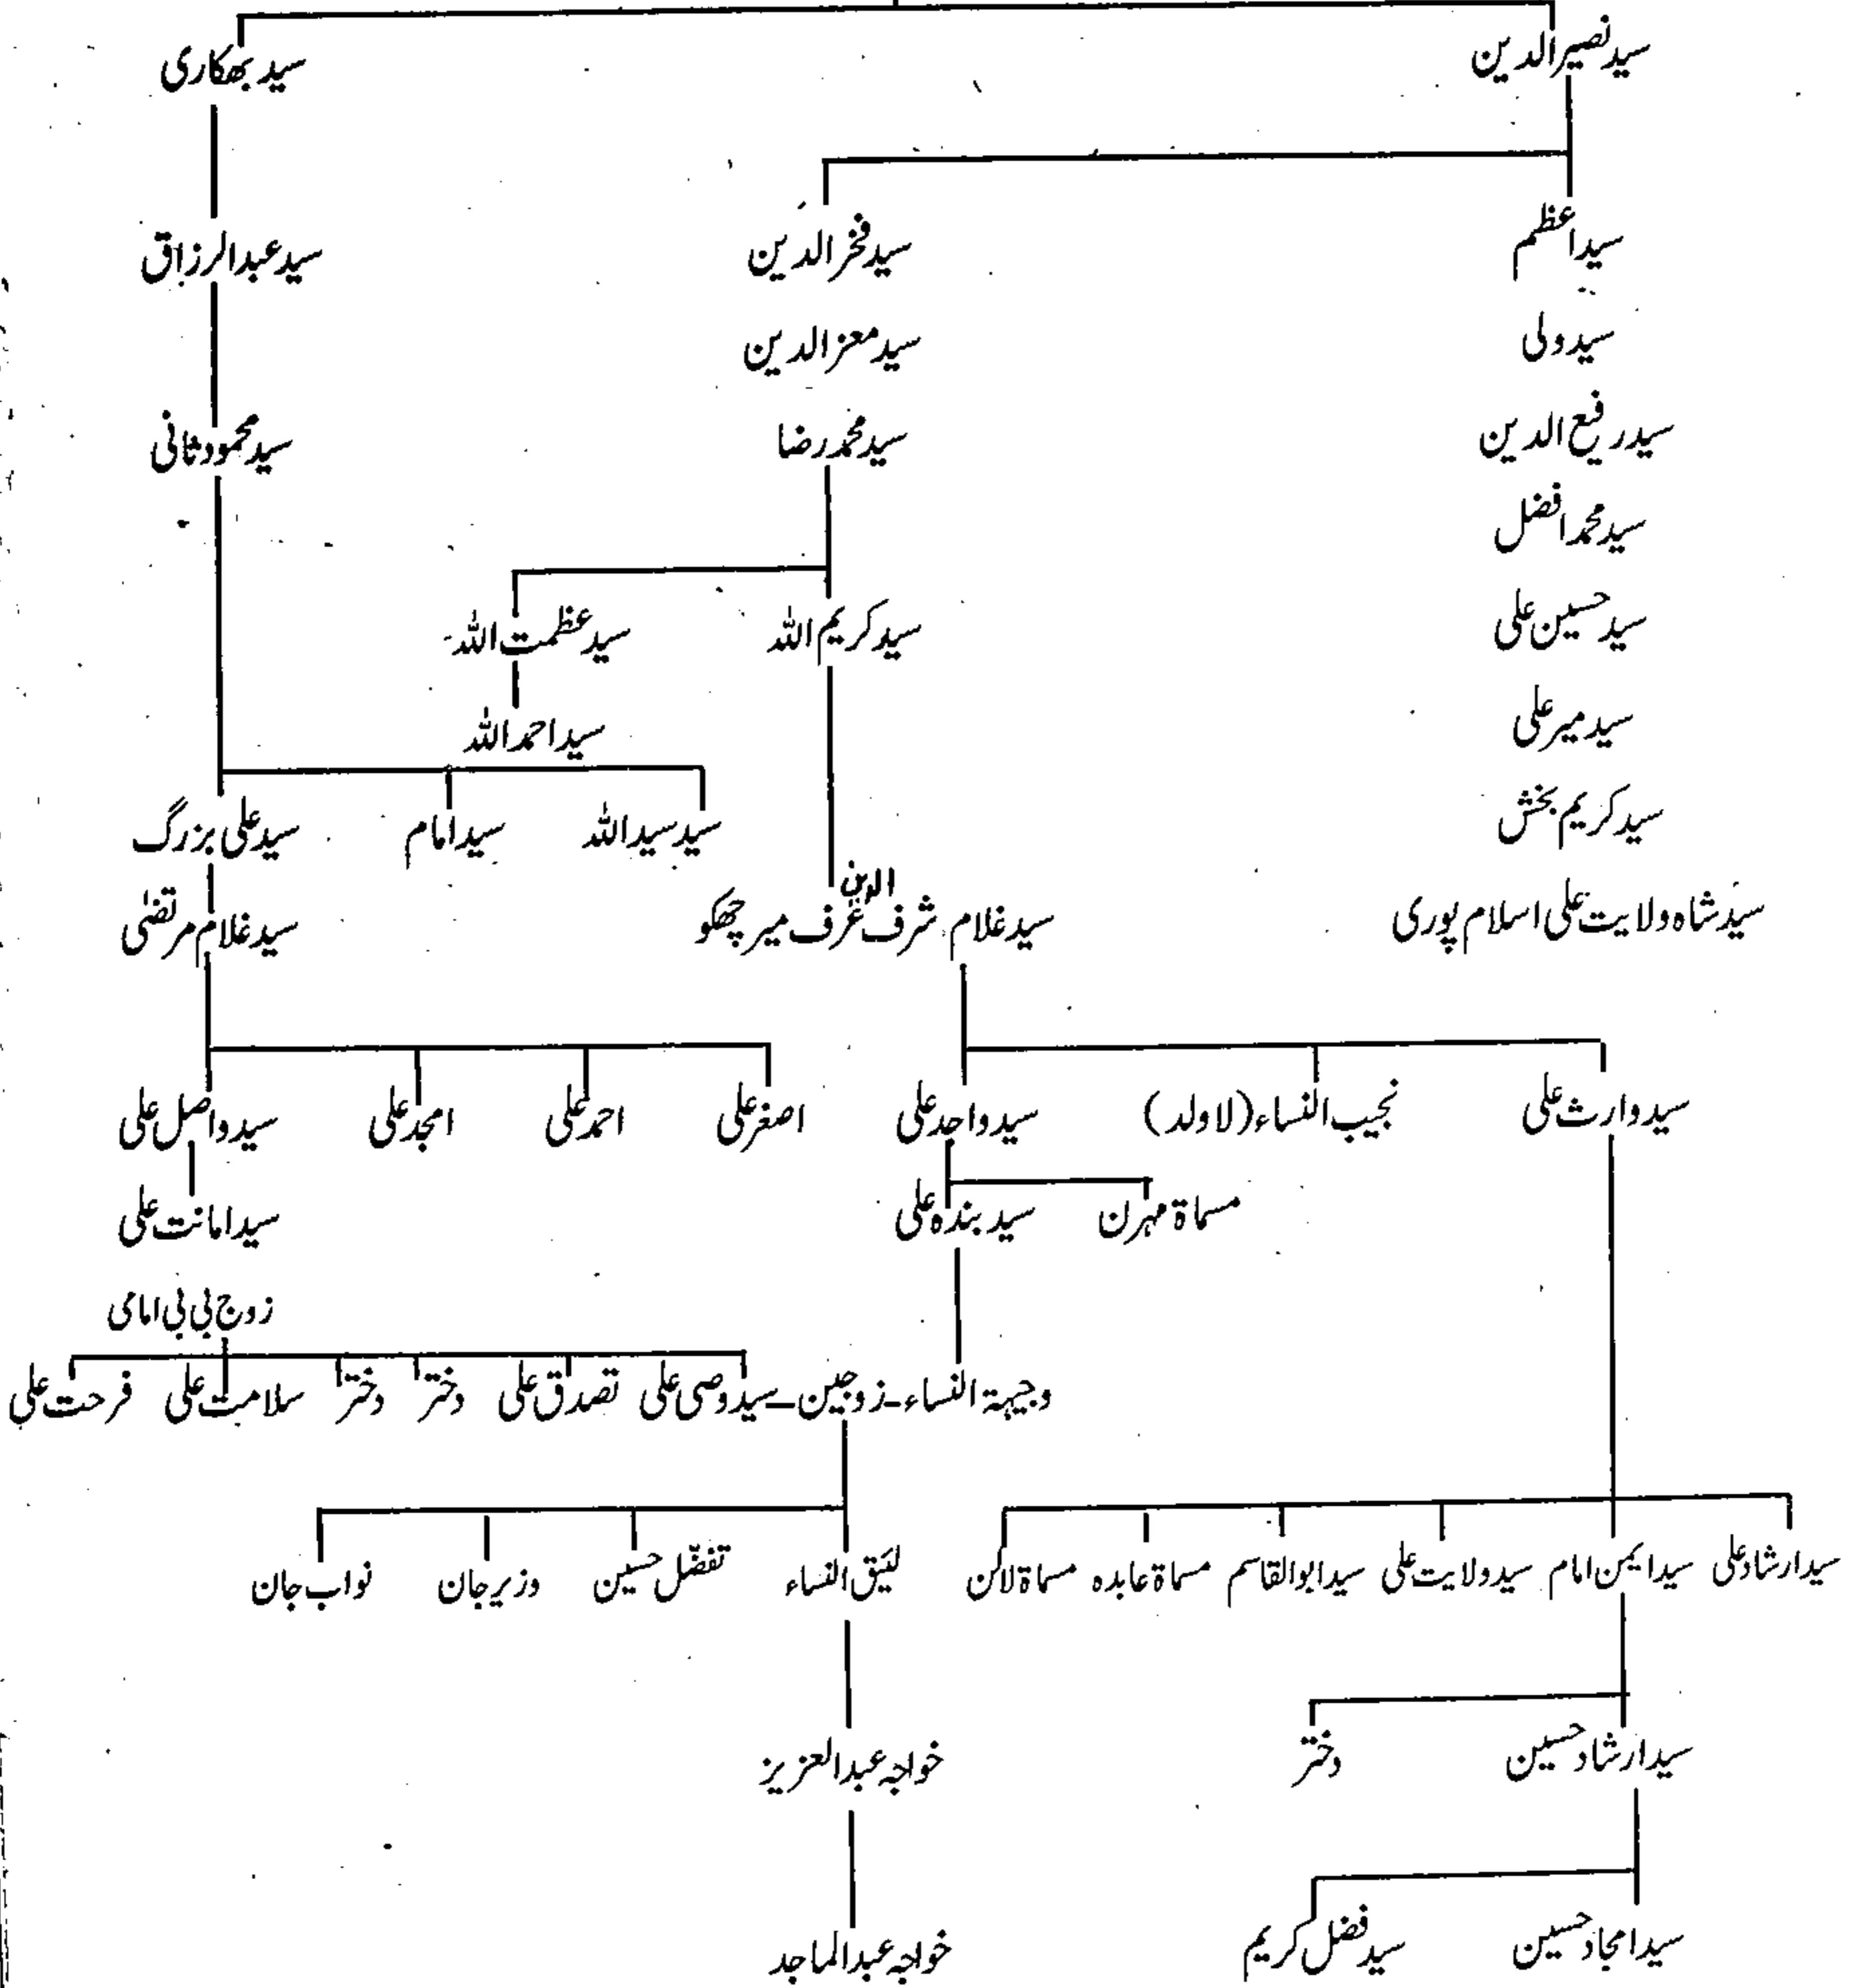 سید نصیر الدین سید بھکاری
سید اعظم سید فخر الدین سید عبدالرزاق
سید ولی سید معز الدین
سید رفیع الدین سید محمد رضا سید محمود ثانی
سید محمد افضل
سید حسین علی سید کریم اللہ سید عظمت اللہ
سید میر علی سید احمد اللہ
سید کریم بخش سید سید اللہ سید امام سید علی بزرگ
الدین
سید شاہ ولایت علی اسلام پوری سید غلام شرف عرف میر چھکو سید غلام مرتضیٰ
سید وارث علی نجیب النساء (لا ولد) سید واجد علی اصغر علی احمد علی امجد علی سید واصل علی
مسماۃ مہرن سید بندہ علی سید امانت علی
زوج بی بی امامی
وجیہۃ النساء - زوجین - سید وصی علی تصدق علی دختر دختر سلامت علی فرحت علی
سید ارشاد علی سید ایمن امام سید ولایت علی سید ابوالقاسم مسماۃ عابدہ مسماۃ لاکن لئیق النساء تفضّل حسین وزیر جان نواب جان
سید ارشاد حسین دختر خواجہ عبدالعزیز
سید امجاد حسین سید فضل کریم خواجہ عبدالماجد